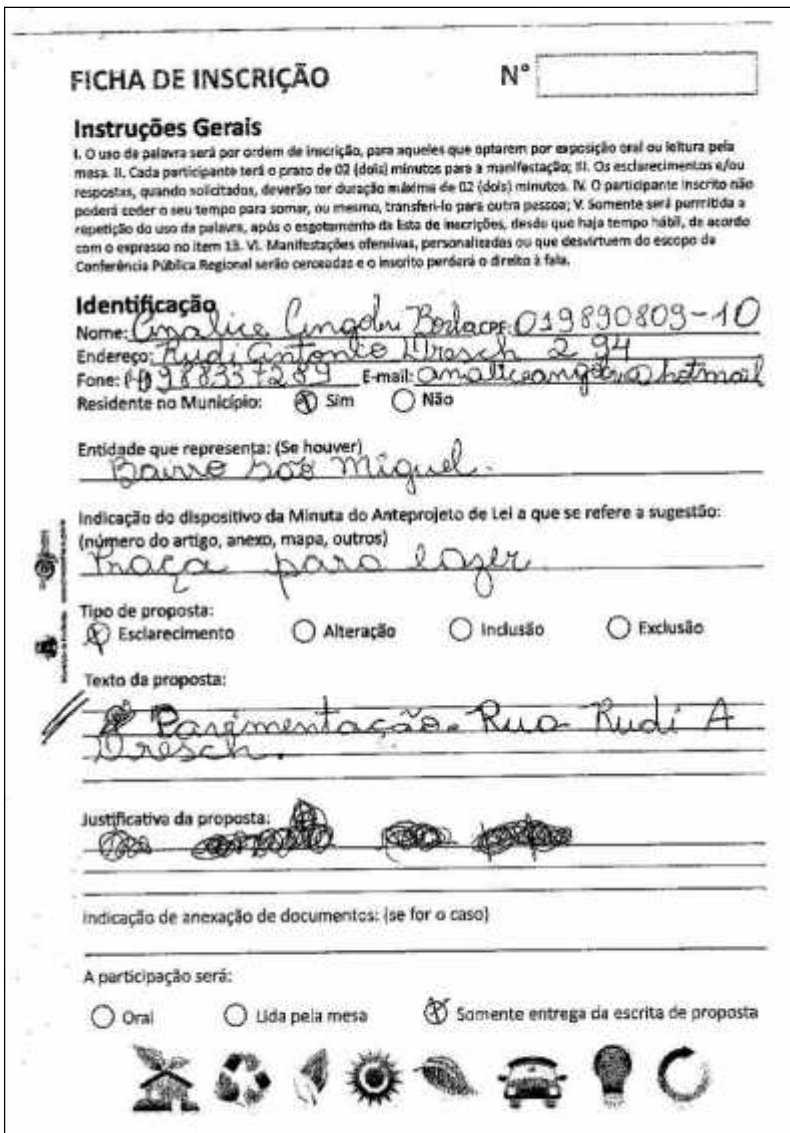 FICHA DE INSCRIÇÃO Nº
Instruções Gerais
I. O uso de palavra será por ordem de inscrição, para aqueles que optarem por exposição oral ou leitura pela
mesa. II. Cada participante terá o prazo de 02 (dois) minutos para a manifestação; III. Os esclarecimentos e/ou
respostas, quando solicitados, deverão ter duração máxima de 02 (dois) minutos. IV. O participante inscrito não
poderá ceder o seu tempo para somar, ou mesmo, transferi-lo para outra pessoa; V. Somente será permitida a
repetição do uso da palavra, após o esgotamento da lista de inscrições, desde que haja tempo hábil, de acordo
com o expresso no item 13. VI. Manifestações ofensivas, personalizadas ou que desvirtuem do escopo da
Conferência Pública Regional serão cerceadas e o inscrito perderá o direito à fala.
Identificação
Nome: Analice CPF: 019890809-10
Endereço: Rudi Antonio Dresch 294
Fone: 988337289 E-mail:
Residente no Município: Sim Não
Entidade que representa: (Se houver)
Bairro São Miguel.
Indicação do dispositivo da Minuta do Anteprojeto de Lei a que se refere a sugestão:
(número do artigo, anexo, mapa, outros)
Praça para lazer
Tipo de proposta:
Esclarecimento Alteração Inclusão Exclusão
Texto da proposta:
Pavimentação. Rua Rudi A
Dresch.
Justificativa da proposta:
Indicação de anexação de documentos: (se for o caso)
A participação será:
Oral Lida pela mesa Somente entrega da escrita de proposta